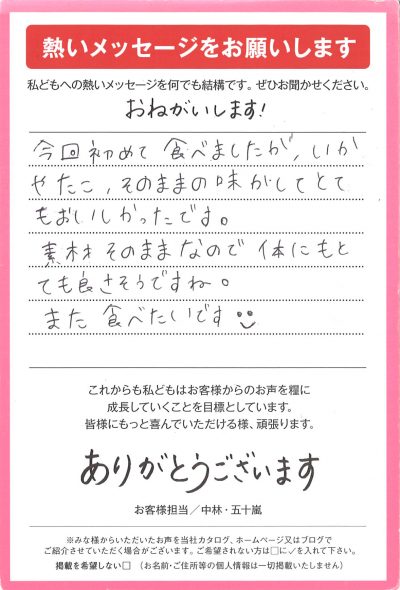 熱いメッセージをお願いします
私どもへの熱いメッセージを何でも結構です。ぜひお聞かせください。
おねがいします!
今回初めて食べましたが、いか
やたこ、そのままの味がしてとて
もおいしかったです。
素材そのままなので体にもと
ても良さそうですね。
また食べたいです
これからも私どもはお客様からのお声を糧に
成長していくことを目標としています。
皆様にもっと喜んでいただける様、頑張ります。
ありがとうございます
お客様担当/中林・五十嵐
※みな様からいただいたお声を当社カタログ、ホームページ又はブログで
ご紹介させていただく場合がございます。ご希望されない方は□に✓を入れて下さい。
掲載を希望しない□ (お名前・ご住所等の個人情報は一切掲載いたしません)